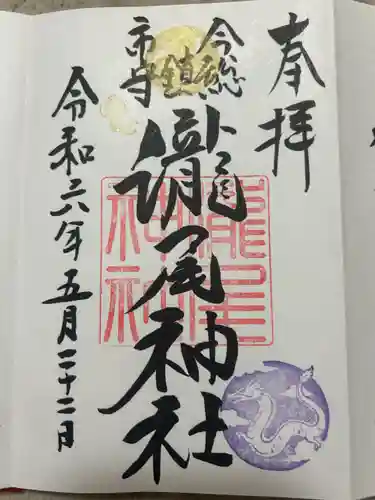 奉拝
今市総鎮守
瀧尾神社
瀧尾神社
令和六年五月二十二日